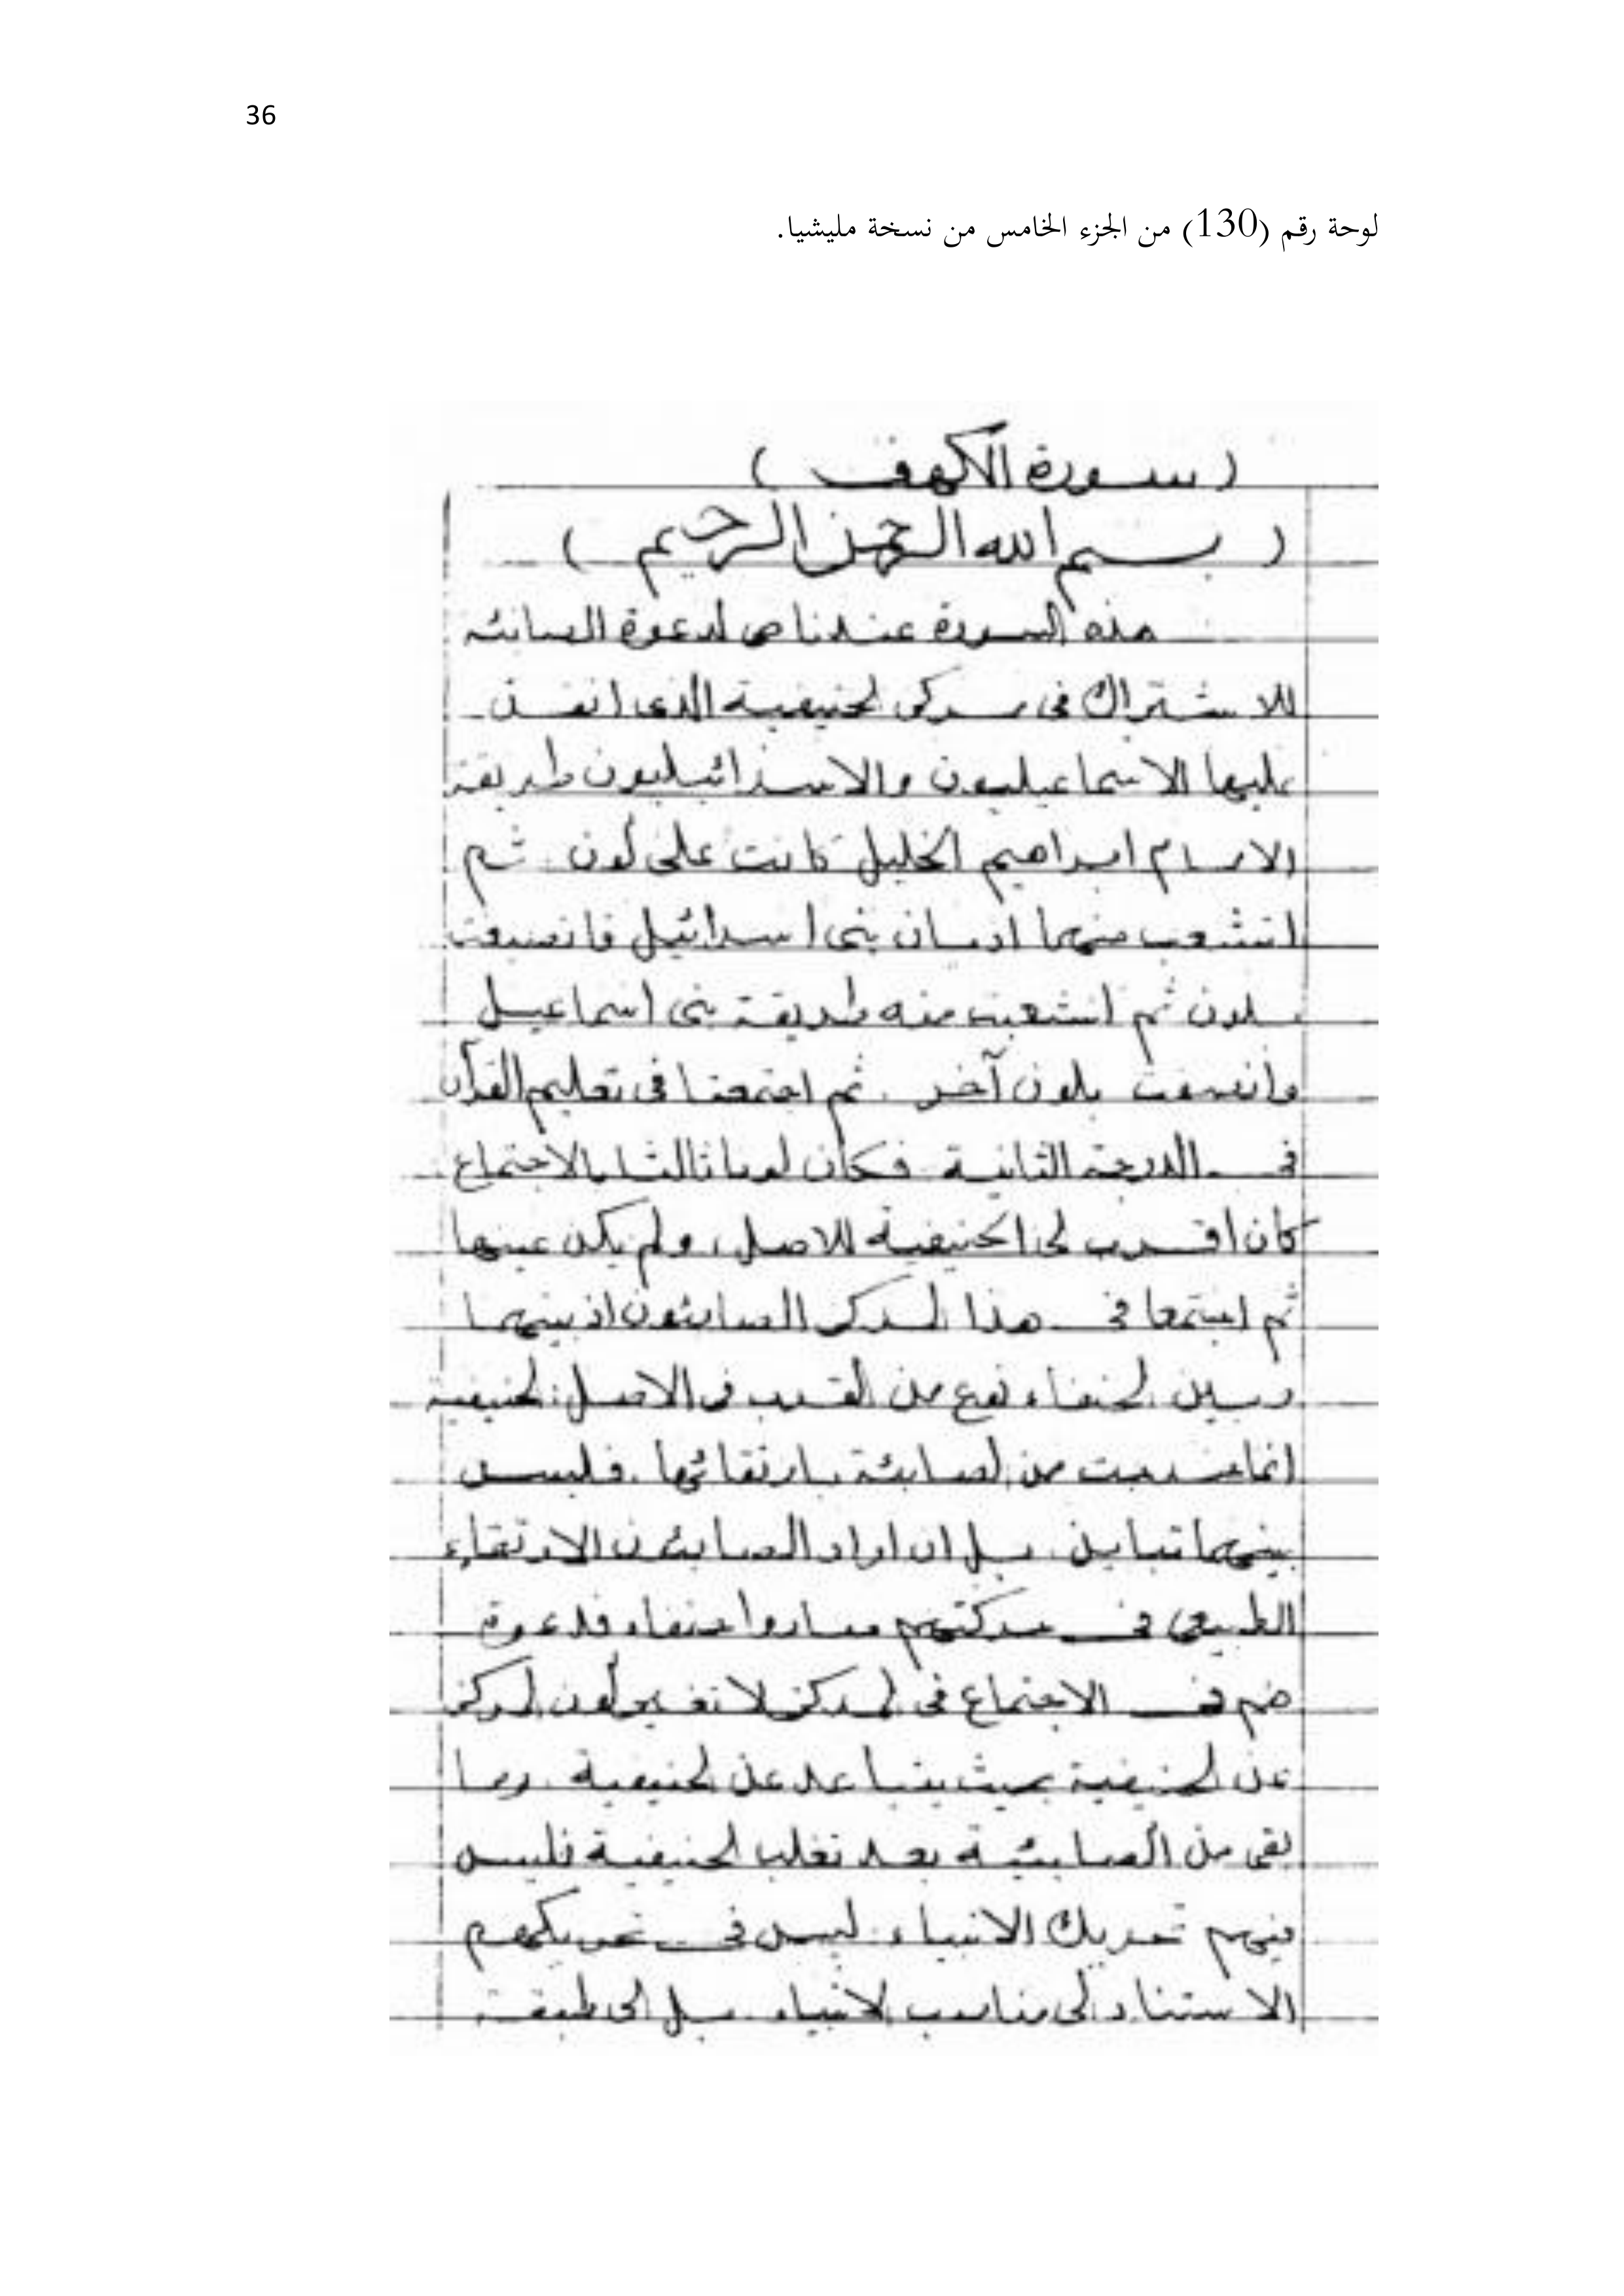 36
لوحة رقم (130) من الجزء الخامس من نسخة مليشيا.
( سورة الكهف )
( بسم الله الرحمن الرحيم )
هذه السورة عندنا هى لدعوة الصابئه
للاشتراك فى مركز الحنيفية الذى اتفق
عليها الاسماعيليون والاسرائيليون طريقة
الامام ابراهيم الخليل كانت على لون ثم
انشعب منهما اديان بنى اسرائيل فانصبغت
بلون ثم انشعبت منه طريقة بنى اسماعيل
وانصبغت بلون آخر . ثم اجتمعتا فى تعليم القرآن
فى الدرجة الثانية فكان لونا ثالثا بالاجتماع
كان اقرب الى الحنيفية للاصل، ولم يكن عينها
ثم اجتمعا فى هذا المركز الصابئون اذ بينهما
وبين الحنفاء نوع من القرب فى الاصل. الحنيفية
انما خرجت من الصابئة بارتقائها . فليس
بينهما تباين بل ان اراد الصابئون الارتقاء
الطبيعى فى حركتهم صاروا حنفاء فدعوة
ضم فى الاجتماع فى المركز لا تغير لون المركز
عن الحنيفية بحيث يتباعد عن الحنيفية وما
بقى من الصابئية بعد تغلب الحنيفية فليس
فيهم تحريك الانبياء ليس فى تحريكهم
الاستناد الى مناسب الانبياء بل الى طبيعة